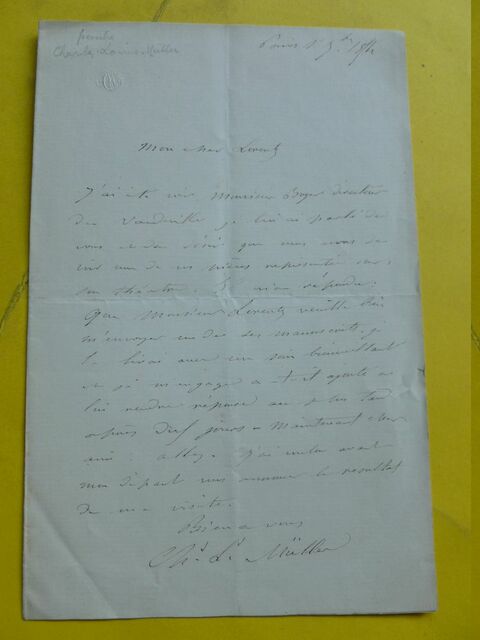 peintre
Charles-Louis Müller
Paris
Mon cher Lorentz
J'ai été voir Monsieur Boyer directeur
du Vaudeville je lui ai parlé de
vous et du désir que vous avez de
voir une de vos pièces représentée sur
son théâtre
Que Monsieur Lorentz veuille bien
m'envoyer un de ses manuscrits je
le lirai avec un soin bienveillant
et je m'engage a-t-il ajouté a
lui rendre réponse au plus tard
après dix jours - Maintenant cher
ami : allez j'ai voulu avant
mon départ vous annoncer le résultat
de ma visite.
Bien a vous
Ch. L. Müller